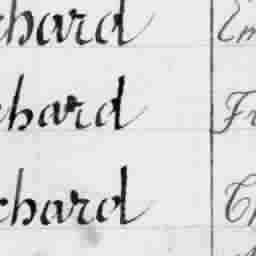 chard Em
chard Fr
chard Ch